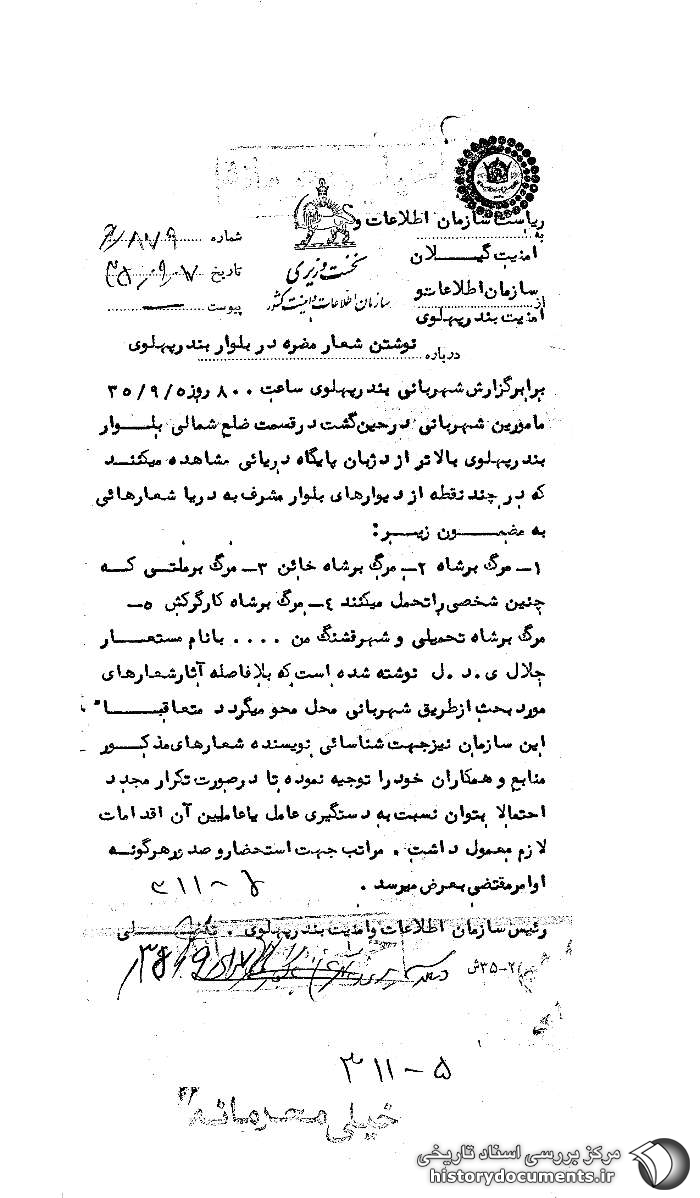 ریاست سازمان اطلاعات و
به
امنیت گیـــلان
از سازمان اطلاعات و
امنیت بندرپهلوی
نخست وزیری
سازمان اطلاعات و امنیت کشور
شماره ۸۷۹
تاریخ ۳۵/۹/۷
پیوست —
درباره نوشتن شعار مضره در بلوار بندرپهلوی
برابرگزارش شهربانی بندرپهلوی ساعت ۸۰۰ روز ۳۵/۹/۵
مامورین شهربانی درحین گشت درقسمت ضلع شمالی بلــوار
بندرپهلوی بالاتر از دژبان پایگاه دریائی مشاهده میکننــد
که در چند نقطه از دیوارهای بلوار مشرف به دریا شعارهائی
به مضمـــون زیــر :
۱ــ مرگ برشاه ۲ــ مرگ برشاه خائن ۳ــ مرگ برملتــی کــه
چنین شخصی راتحمل میکنند ۴ــ مرگ برشاه کارگرکش ۵ــ
مرگ برشاه تحمیلی و شهرقشنگ من .... بانام مستعــار
جلال ی . د . ل نوشته شده است که بلافاصله آثارشعارهای
مورد بحث ازطریق شهربانی محل محو میگردد متعاقبــاً
این سازمان نیزجهت شناسائی نویسنده شعارهای مذکــور
منابع و همکاران خود را توجیه نموده تا درصورت تکرار مجدد
احتمالا بتوان نسبت به دستگیری عامل یاعاملین آن اقدامات
لازم معمول داشت . مراتب جهت استحضار و صدور هرگونــه
اوامر مقتضی بعرض میرسد .
رئیس سازمان اطلاعات وامنیت بندرپهلوی .
۳۵-۲
۳۱۱-۵
خیلی محرمانه
مرکز بررسی اسناد تاریخی
historydocuments.ir